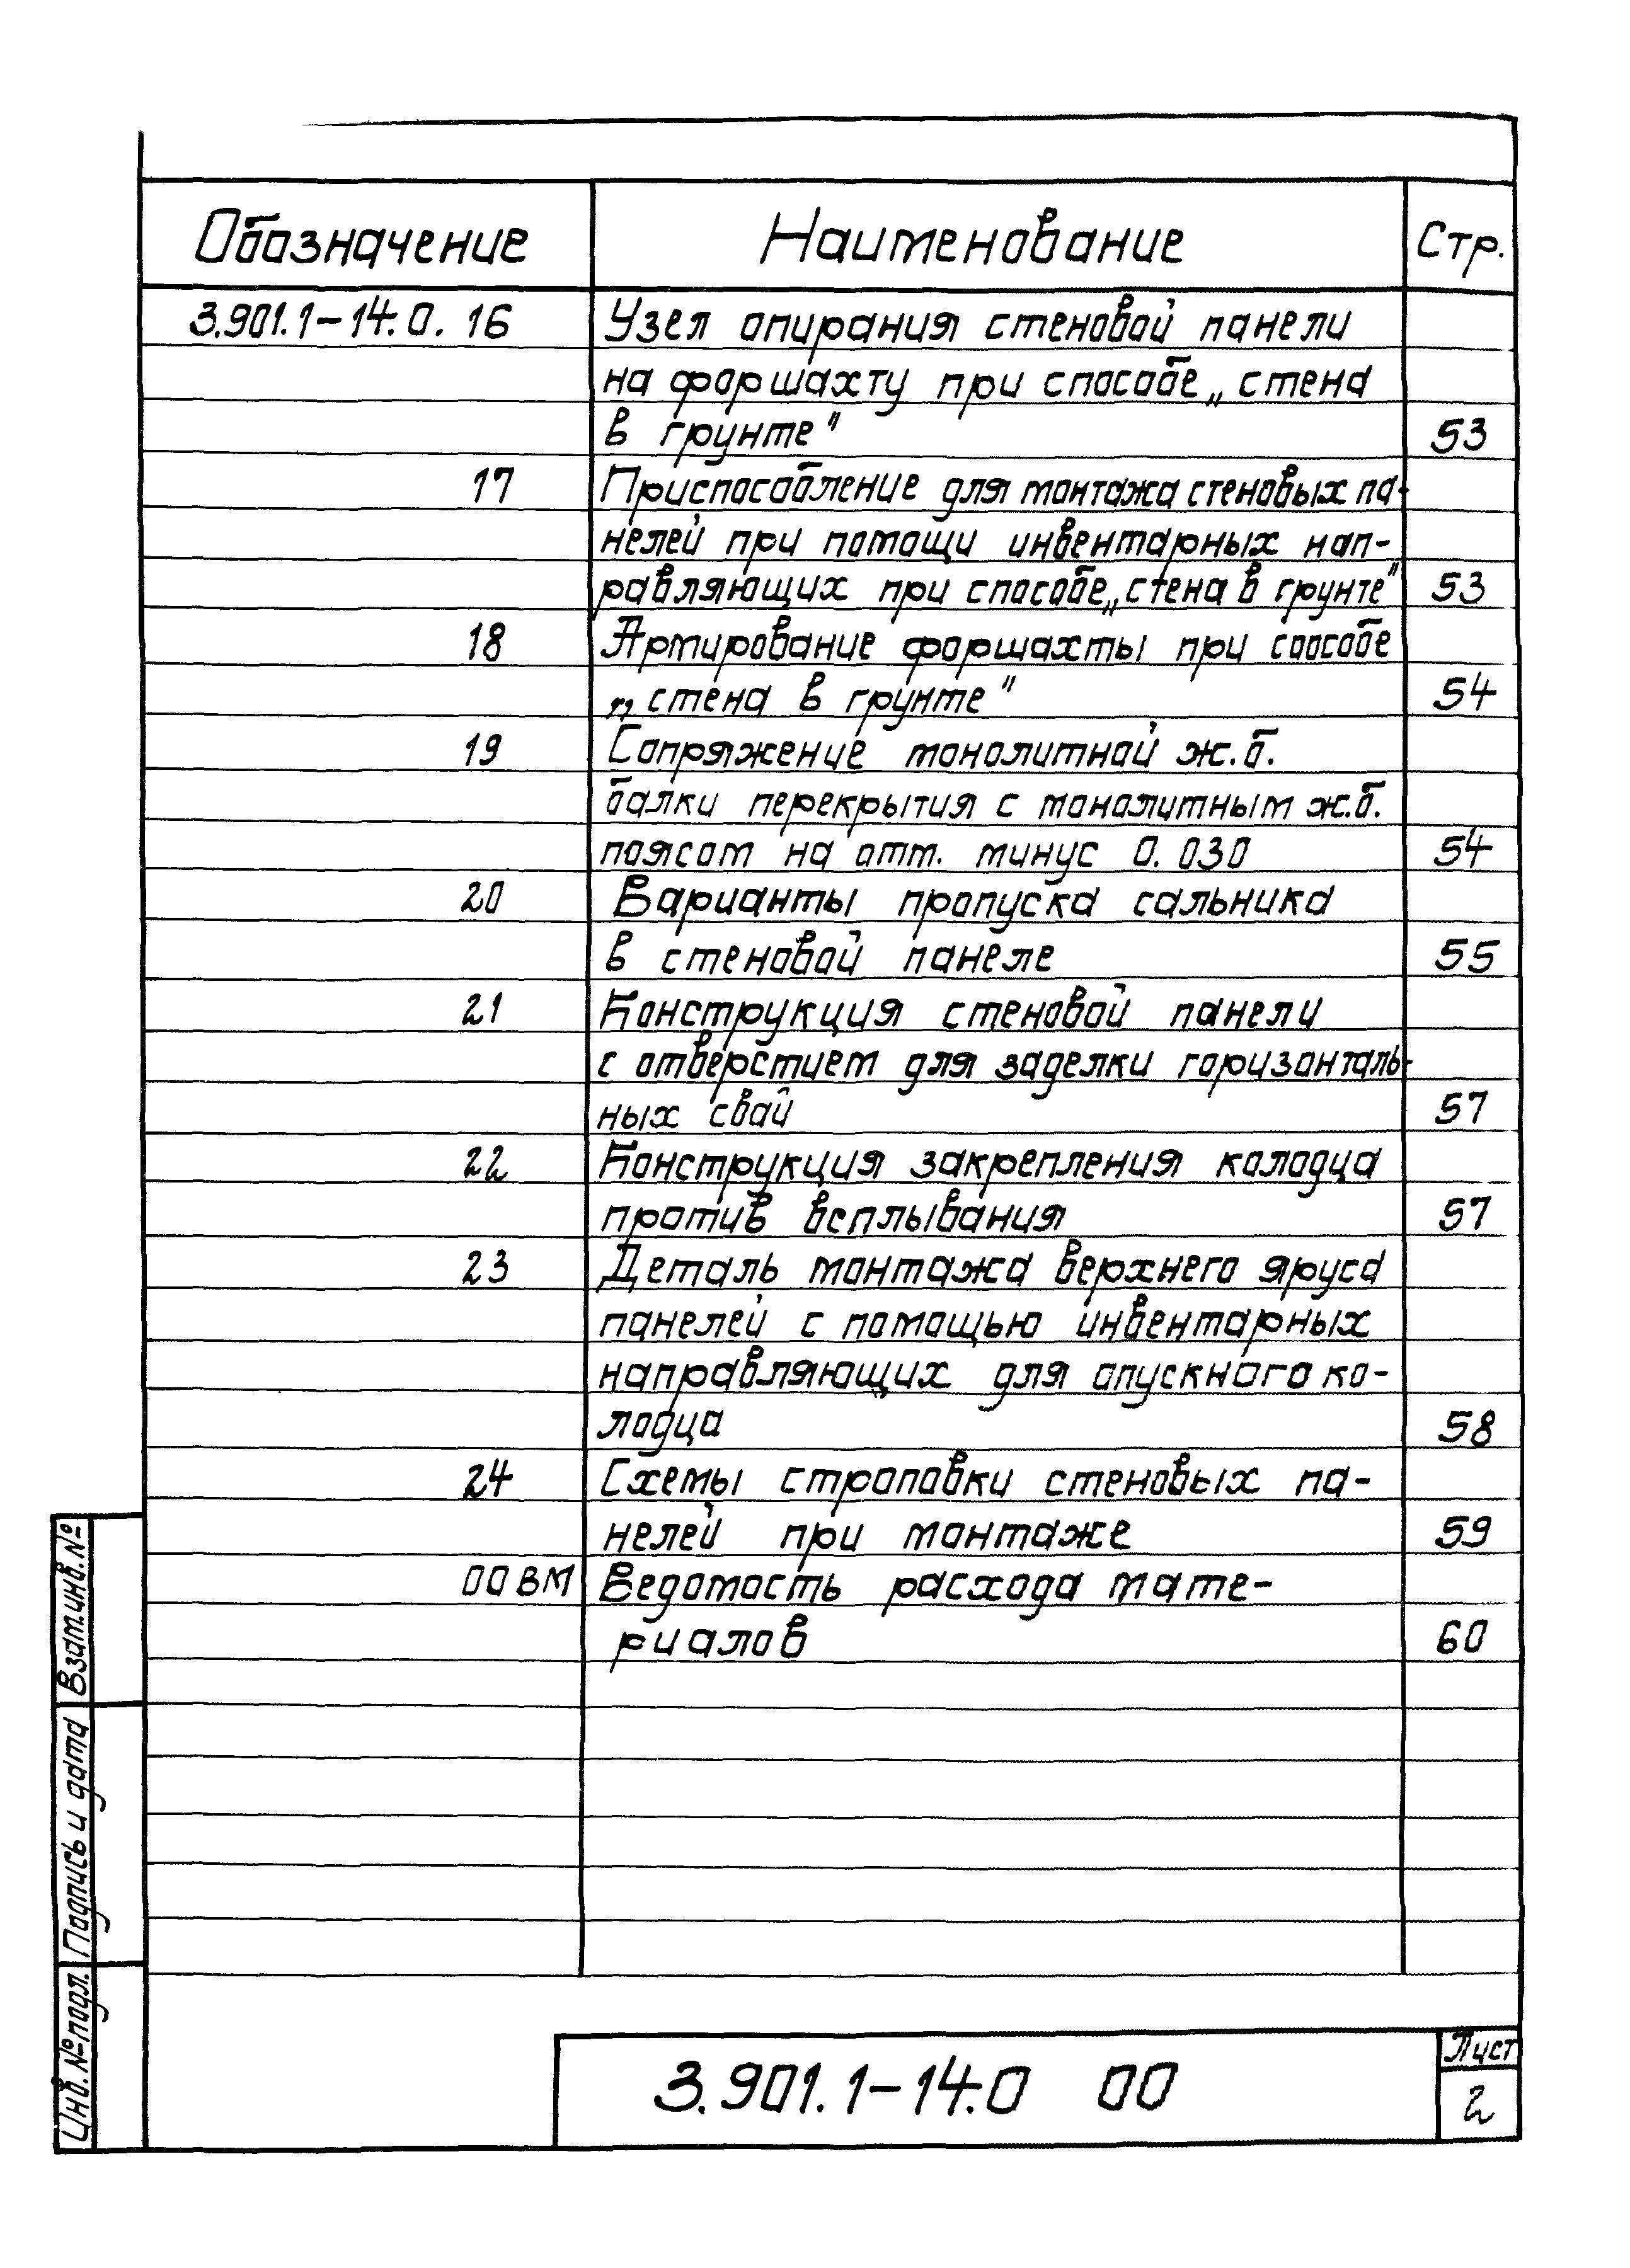 Обозначение Наименование Стр.
3.901.1-14.0. 16 Узел опирания стеновой панели
на форшахту при способе „стена
в грунте" 53
17 Приспособление для монтажа стеновых па-
нелей при помощи инвентарных нап-
равляющих при способе „стена в грунте" 53
18 Армирование форшахты при способе
„стена в грунте" 54
19 Сопряжение монолитной ж.б.
балки перекрытия с монолитным ж.б.
поясом на отм. минус 0.030 54
20 Варианты пропуска сальника
в стеновой панеле 55
21 Конструкция стеновой панели
с отверстием для заделки горизонталь-
ных свай 57
22 Конструкция закрепления колодца
против всплывания 57
23 Деталь монтажа верхнего яруса
панелей с помощью инвентарных
направляющих для опускного ко-
лодца 58
24 Схемы строповки стеновых па-
нелей при монтаже 59
00ВМ Ведомость расхода мате-
риалов 60
Взам.инв.№
Подпись и дата
Инв.№подл.
3.901.1-14.0 00
Лист
2